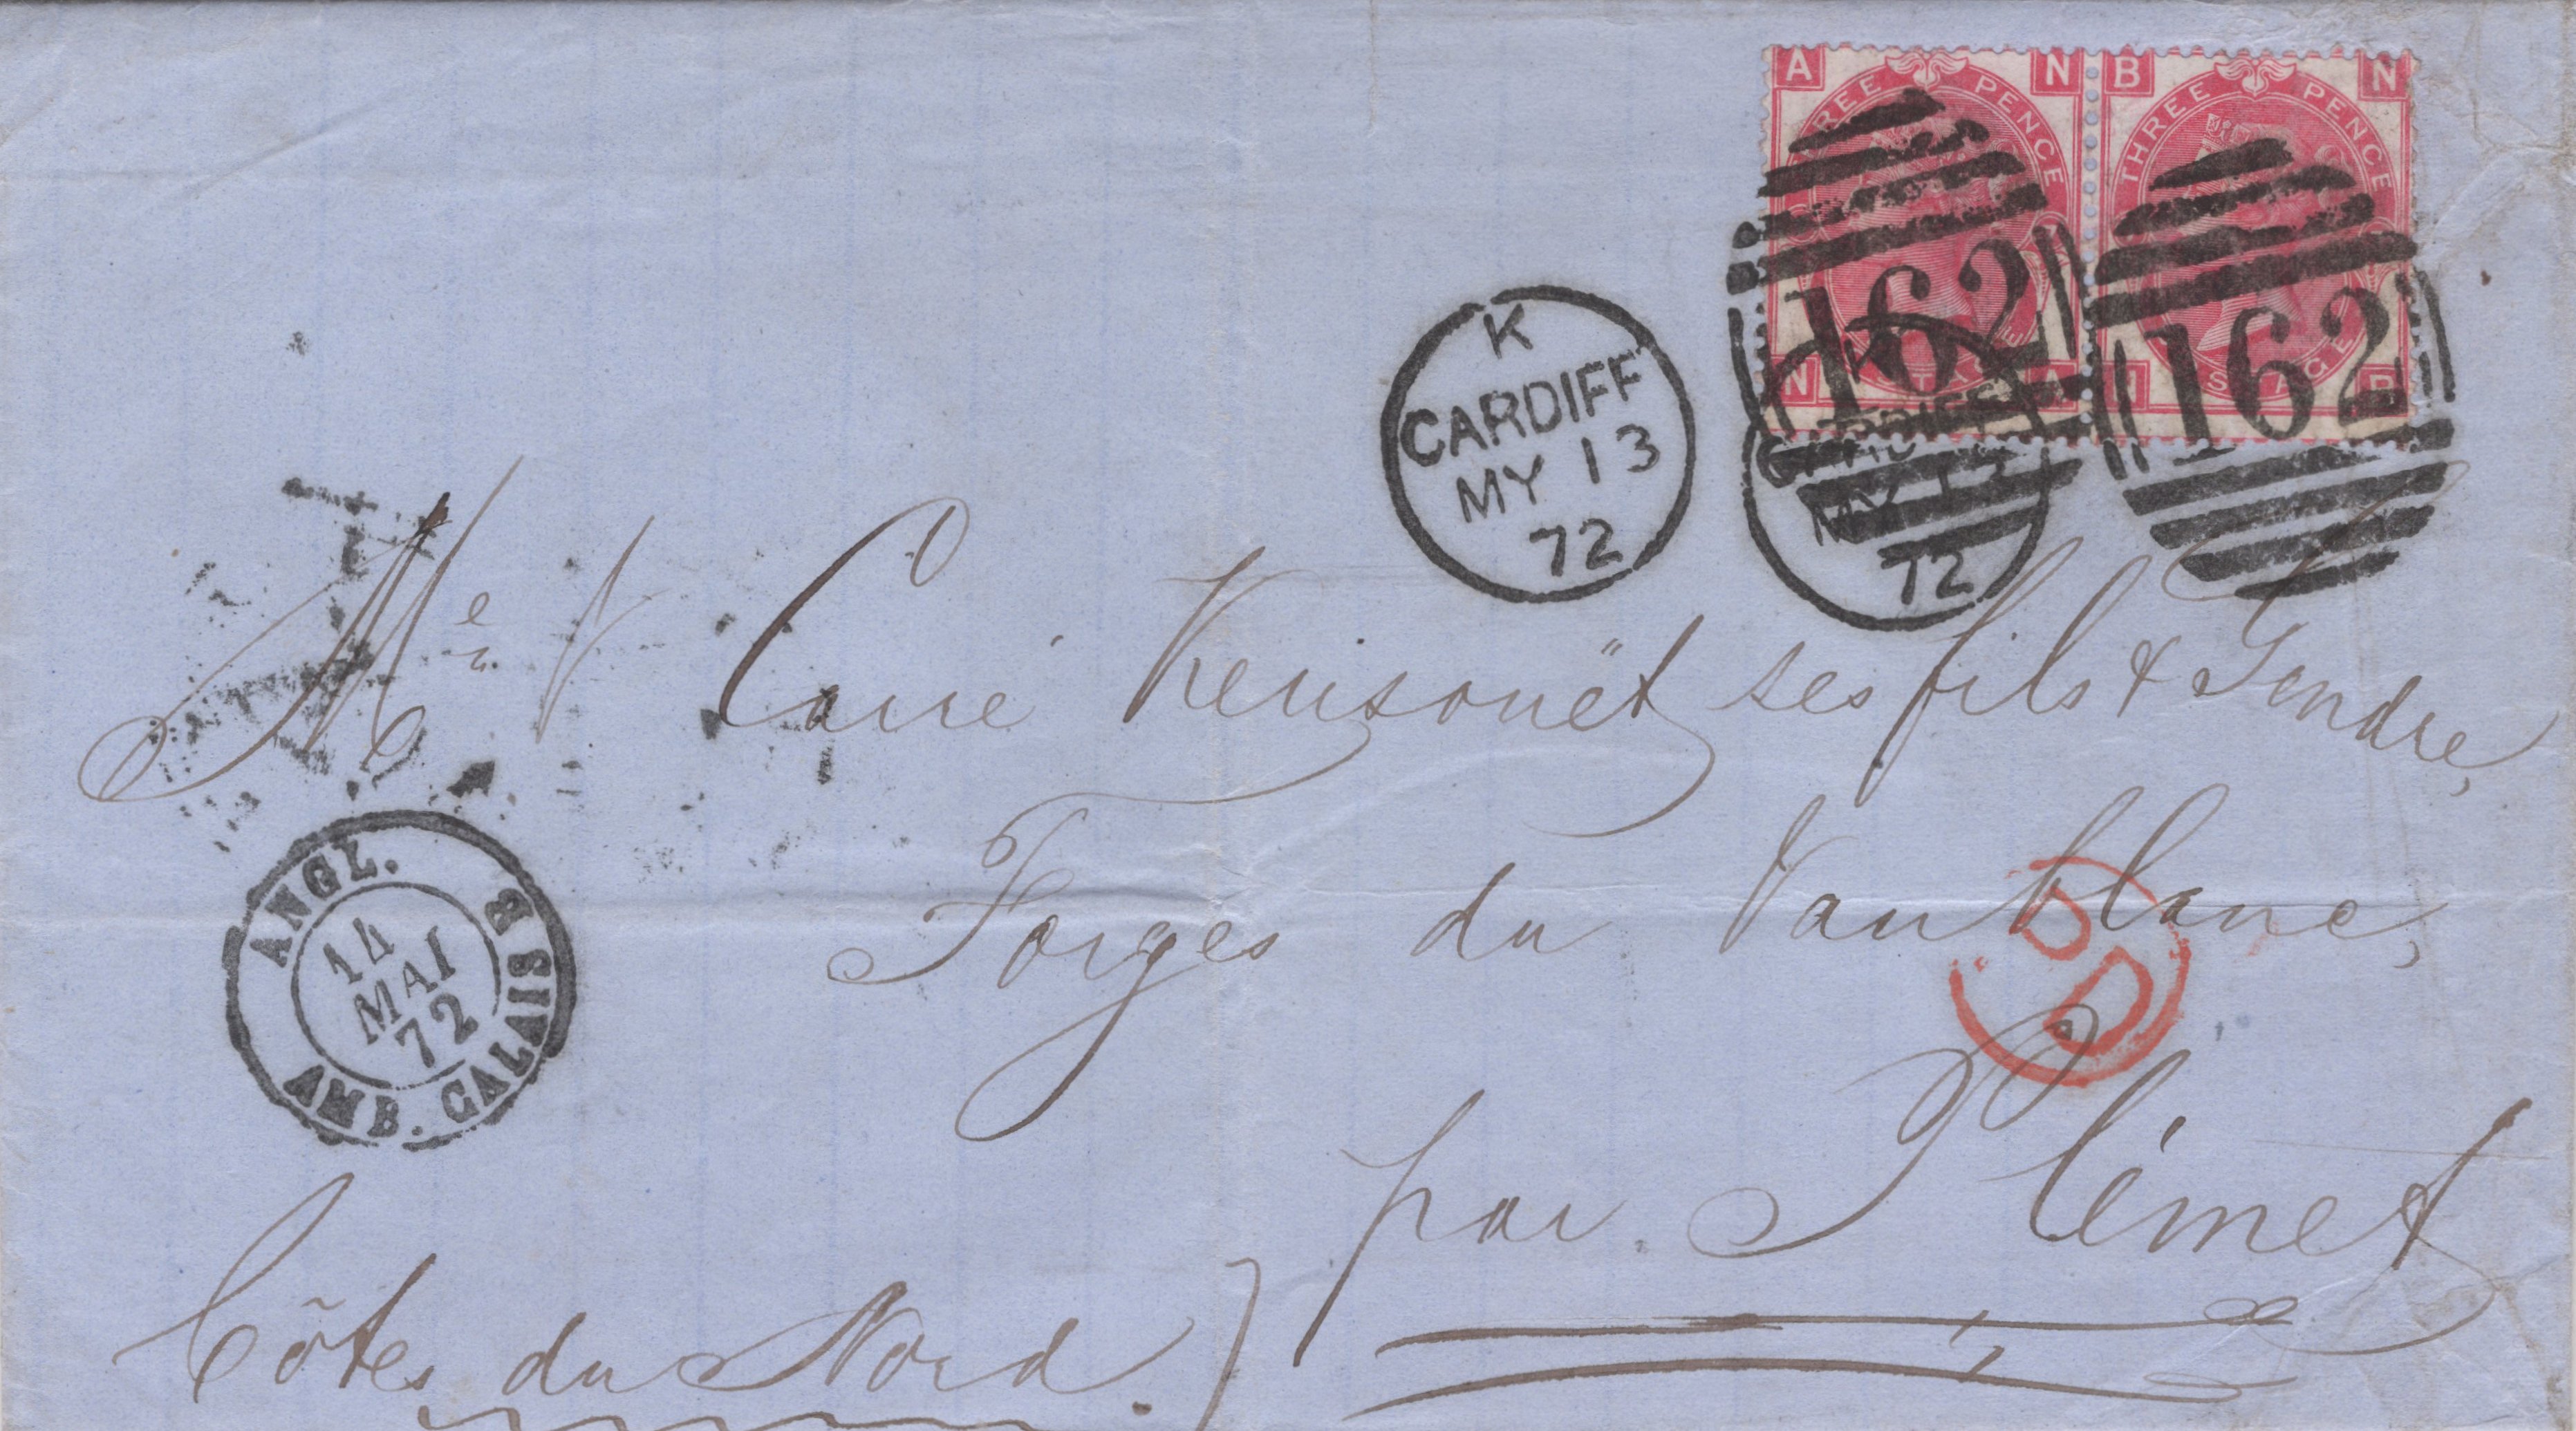 A N B N
THREE PENCE THREE PENCE
162 162
N A N B
K
CARDIFF
MY 13
72
72
Me Ve Carré Kerisouët ses fils & Gendre,
Forges du Vaublanc,
PD
ANGL.
14
MAI
72
AMB. CALAIS B
par Plémet
Côtes du Nord.)